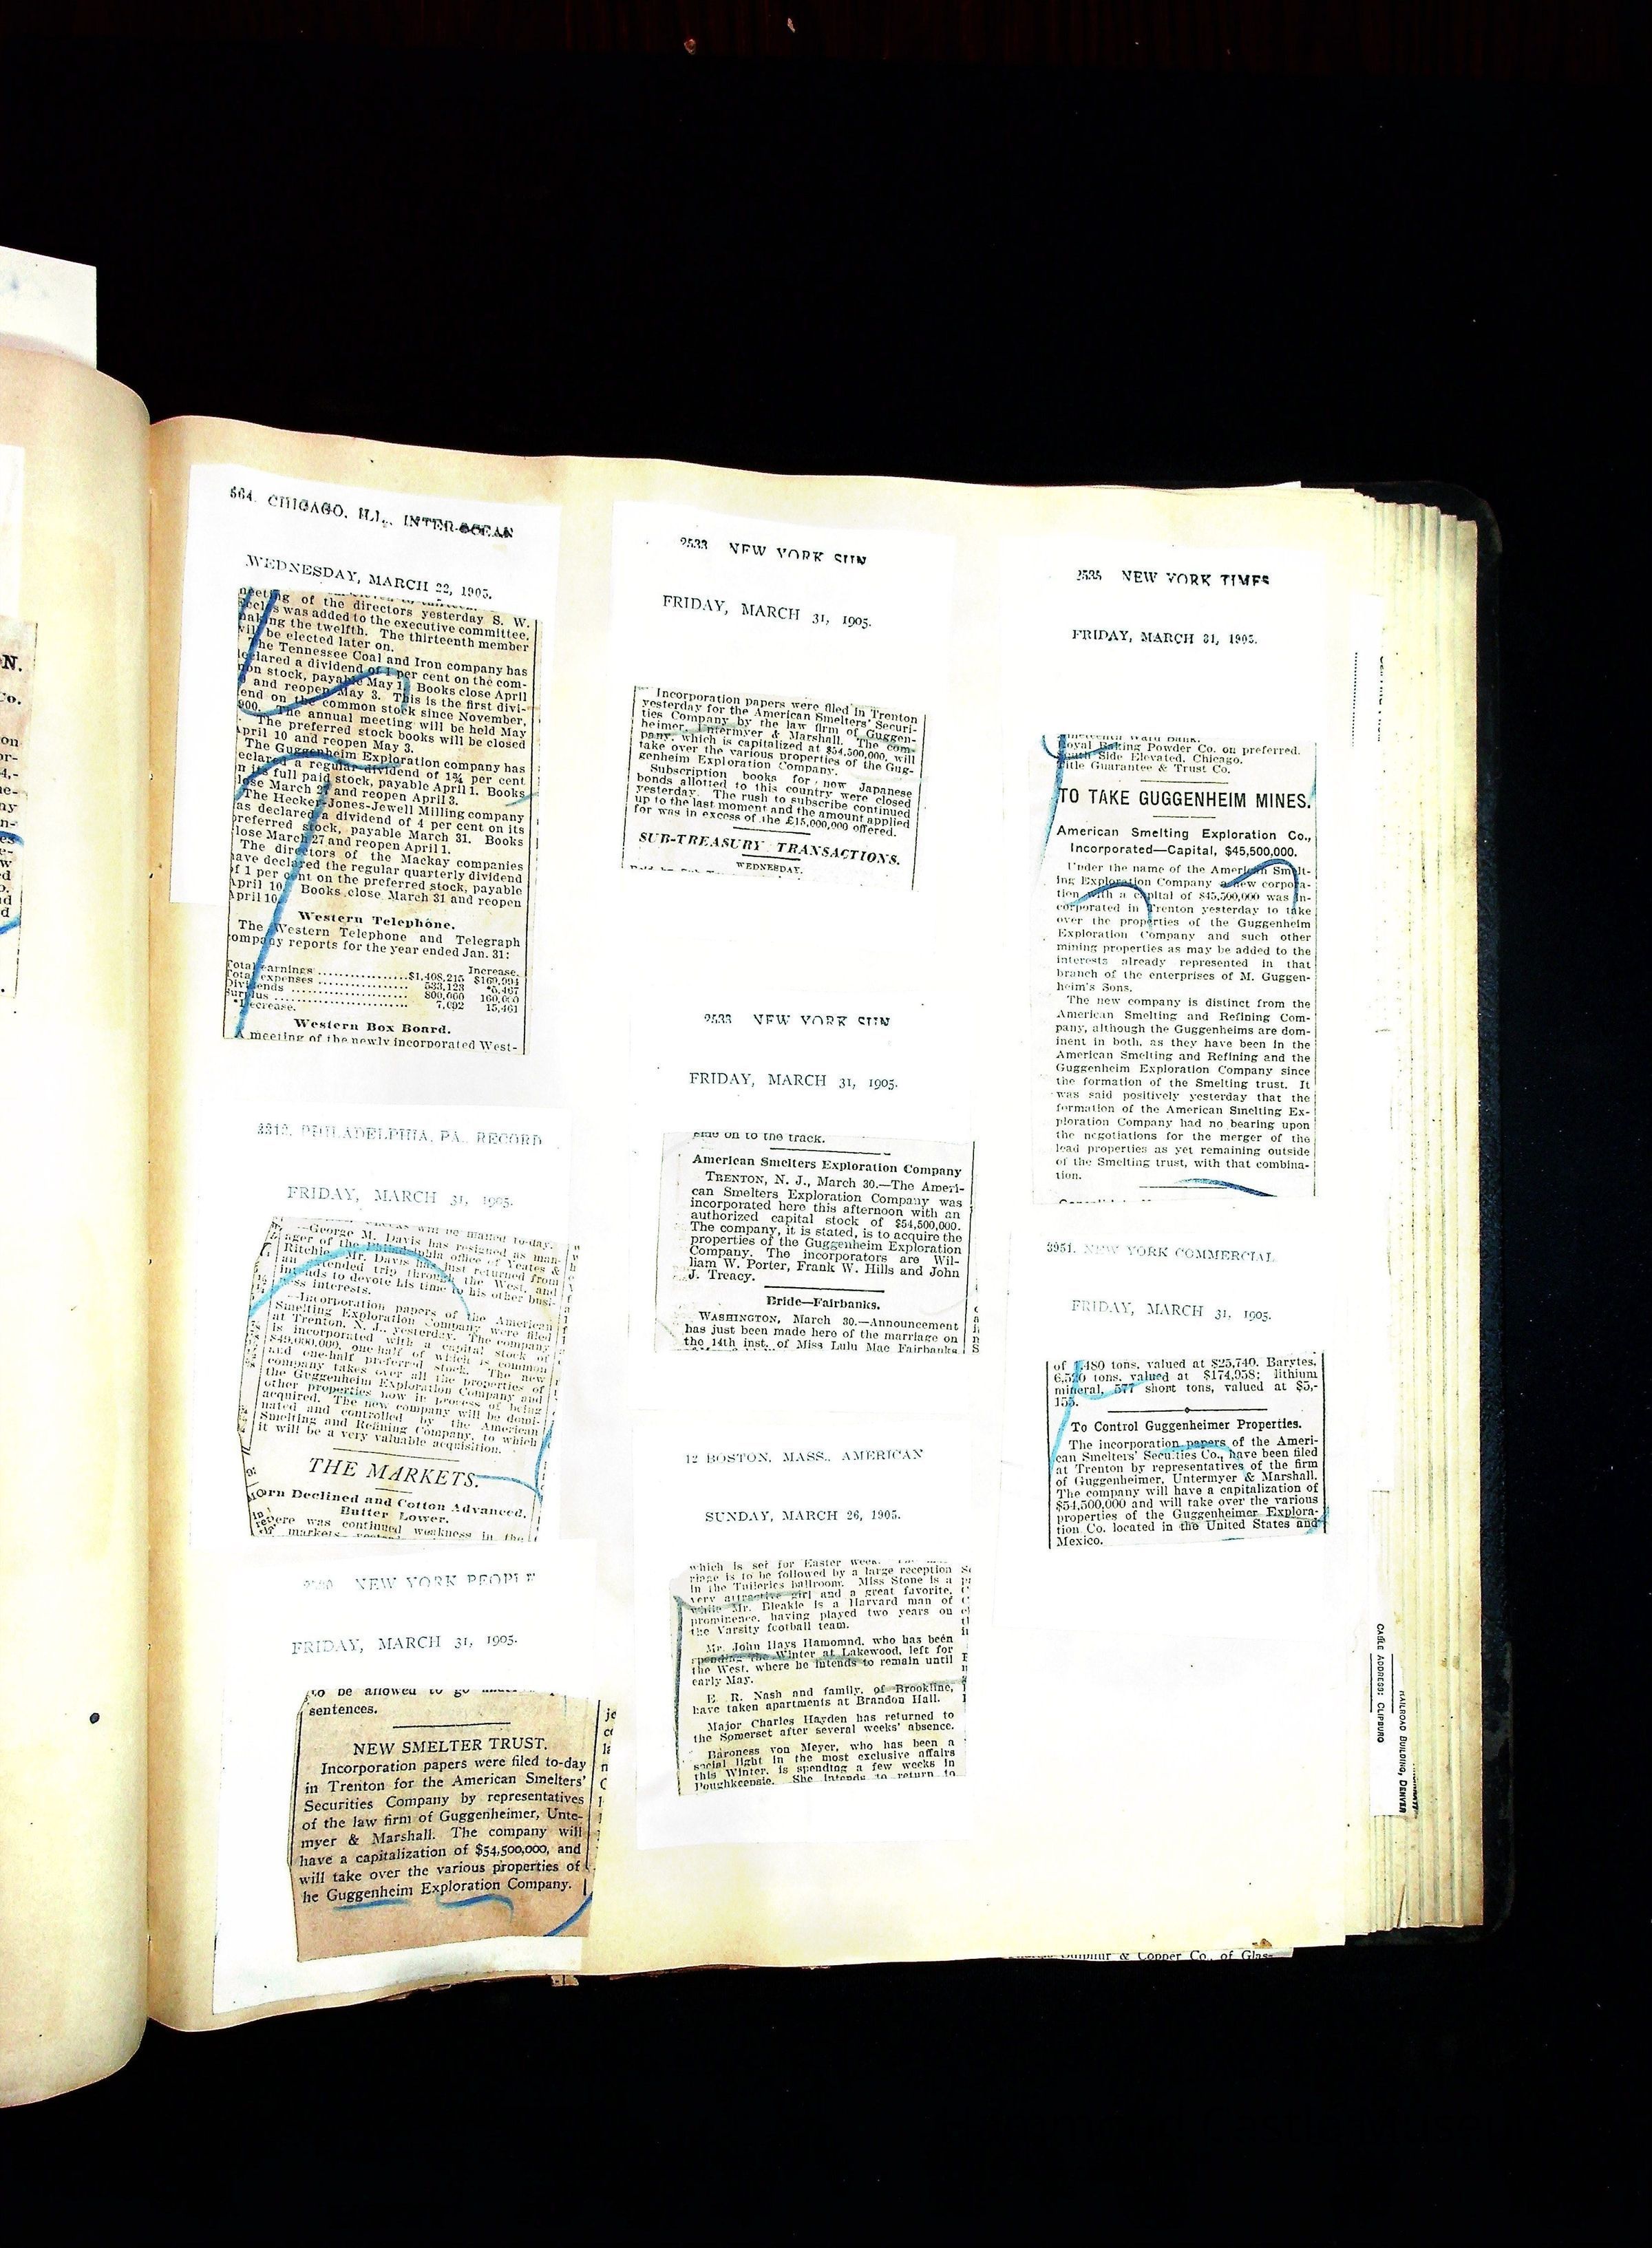 564. CHICAGO, ILL., INTER-OCEAN
WEDNESDAY, MARCH 22, 1905.
meeting of the directors yesterday S. W.
Eccles was added to the executive committee,
making the twelfth. The thirteenth member
will be elected later on.
The Tennessee Coal and Iron company has
declared a dividend of 1 per cent on the com-
mon stock, payable May 1. Books close April
and reopen May 3. This is the first divi-
dend on the common stock since November,
900. The annual meeting will be held May
The preferred stock books will be closed
April 10 and reopen May 3.
The Guggenheim Exploration company has
declared a regular dividend of 1¾ per cent
on its full paid stock, payable April 1. Books
close March 27 and reopen April 3.
The Hecker-Jones-Jewell Milling company
has declared a dividend of 4 per cent on its
preferred stock, payable March 31. Books
close March 27 and reopen April 1.
The directors of the Mackay companies
have declared the regular quarterly dividend
of 1 per cent on the preferred stock, payable
April 10. Books close March 31 and reopen
April 10.
Western Telephone.
The Western Telephone and Telegraph
company reports for the year ended Jan. 31:
Increase.
Total earnings ............ $1,408,215 $169,994
Total expenses ............ 533,123 *5,467
Dividends ............ 800,000 160,000
Surplus ............ 7,092 15,461
*Decrease.
Western Box Board.
A meeting of the newly incorporated West-
3313. PHILADELPHIA, PA., RECORD
FRIDAY, MARCH 31, 1905.
will be mailed to-day.
—George M. Davis has resigned as man-
ager of the Philadelphia office of Yeates &
Ritchie. Mr. Davis has just returned from
an extended trip through the West, and
intends to devote his time to his other busi-
ness interests.
—Incorporation papers of the American
Smelting Exploration Company were filed
at Trenton, N. J., yesterday. The company
is incorporated with a capital stock of
one-half of which is common
and one-half preferred stock. The new
company takes over all the properties of
the Guggenheim Exploration Company and
other properties now in process of being
acquired. The new company will be domi-
nated and controlled by the American
Smelting and Refining Company, to which
it will be a very valuable acquisition.
THE MARKETS.
Corn Declined and Cotton Advanced.
Butter Lower.
There was continued weakness in the
NEW YORK PEOPLE
FRIDAY, MARCH 31, 1905.
to be allowed to go
sentences.
NEW SMELTER TRUST.
Incorporation papers were filed to-day
in Trenton for the American Smelters'
Securities Company by representatives
of the law firm of Guggenheimer, Unte-
myer & Marshall. The company will
have a capitalization of $54,500,000, and
will take over the various properties of
he Guggenheim Exploration Company.
2533 NEW YORK SUN
FRIDAY, MARCH 31, 1905.
Incorporation papers were filed in Trenton
yesterday for the American Smelters' Securi-
ties Company by the law firm of Guggen-
heimer, Untermyer & Marshall. The com-
pany, which is capitalized at $54,500,000, will
take over the various properties of the Gug-
genheim Exploration Company.
Subscription books for new Japanese
bonds allotted to this country were closed
yesterday. The rush to subscribe continued
up to the last moment and the amount applied
for was in excess of the £15,000,000 offered.
SUB-TREASURY TRANSACTIONS.
WEDNESDAY.
2533 NEW YORK SUN
FRIDAY, MARCH 31, 1905.
side on to the track.
American Smelters Exploration Company
TRENTON, N. J., March 30.—The Ameri-
can Smelters Exploration Company was
incorporated here this afternoon with an
authorized capital stock of $54,500,000.
The company, it is stated, is to acquire the
properties of the Guggenheim Exploration
Company. The incorporators are Wil-
liam W. Porter, Frank W. Hills and John
J. Treacy.
Bride—Fairbanks.
WASHINGTON, March 30.—Announcement
has just been made here of the marriage on
the 14th inst. of Miss Lulu Mae Fairbanks
12 BOSTON, MASS., AMERICAN
SUNDAY, MARCH 26, 1905.
which is set for Easter week.
riage is to be followed by a large reception
in the Tuileries ballroom. Miss Stone is a
very attractive girl and a great favorite,
while Mr. Bleakie is a Harvard man of
prominence, having played two years on
the Varsity football team.
Mr. John Hays Hamomnd, who has been
spending the Winter at Lakewood, left for
the West, where he intends to remain until
early May.
E. R. Nash and family, of Brookline,
have taken apartments at Brandon Hall.
Major Charles Hayden has returned to
the Somerset after several weeks' absence.
Baroness von Meyer, who has been a
social light in the most exclusive affairs
this Winter, is spending a few weeks in
Poughkeepsie. She intends to return to
2535 NEW YORK TIMES
FRIDAY, MARCH 31, 1905.
Nineteenth Ward Bank.
Royal Baking Powder Co. on preferred.
South Side Elevated, Chicago.
Title Guarantee & Trust Co.
TO TAKE GUGGENHEIM MINES.
American Smelting Exploration Co.,
Incorporated—Capital, $45,500,000.
Under the name of the American Smelt-
ing Exploration Company a new corpora-
tion with a capital of $45,500,000 was in-
corporated in Trenton yesterday to take
over the properties of the Guggenheim
Exploration Company and such other
mining properties as may be added to the
interests already represented in that
branch of the enterprises of M. Guggen-
heim's Sons.
The new company is distinct from the
American Smelting and Refining Com-
pany, although the Guggenheims are dom-
inent in both, as they have been in the
American Smelting and Refining and the
Guggenheim Exploration Company since
the formation of the Smelting trust. It
was said positively yesterday that the
formation of the American Smelting Ex-
ploration Company had no bearing upon
the negotiations for the merger of the
lead properties as yet remaining outside
of the Smelting trust, with that combina-
tion.
3951. NEW YORK COMMERCIAL
FRIDAY, MARCH 31, 1905.
of 1,480 tons, valued at $25,740. Barytes,
6,526 tons, valued at $174,958; lithium
mineral, 577 short tons, valued at $5,-
155.
To Control Guggenheimer Properties.
The incorporation papers of the Ameri-
can Smelters' Secuities Co., have been filed
at Trenton by representatives of the firm
of Guggenheimer, Untermyer & Marshall.
The company will have a capitalization of
$54,500,000 and will take over the various
properties of the Guggenheimer Explora-
tion Co. located in the United States and
Mexico.
CABLE ADDRESS: CLIPBURO
RAILROAD BUILDING, DENVER
Sulphur & Copper Co., of Glas-